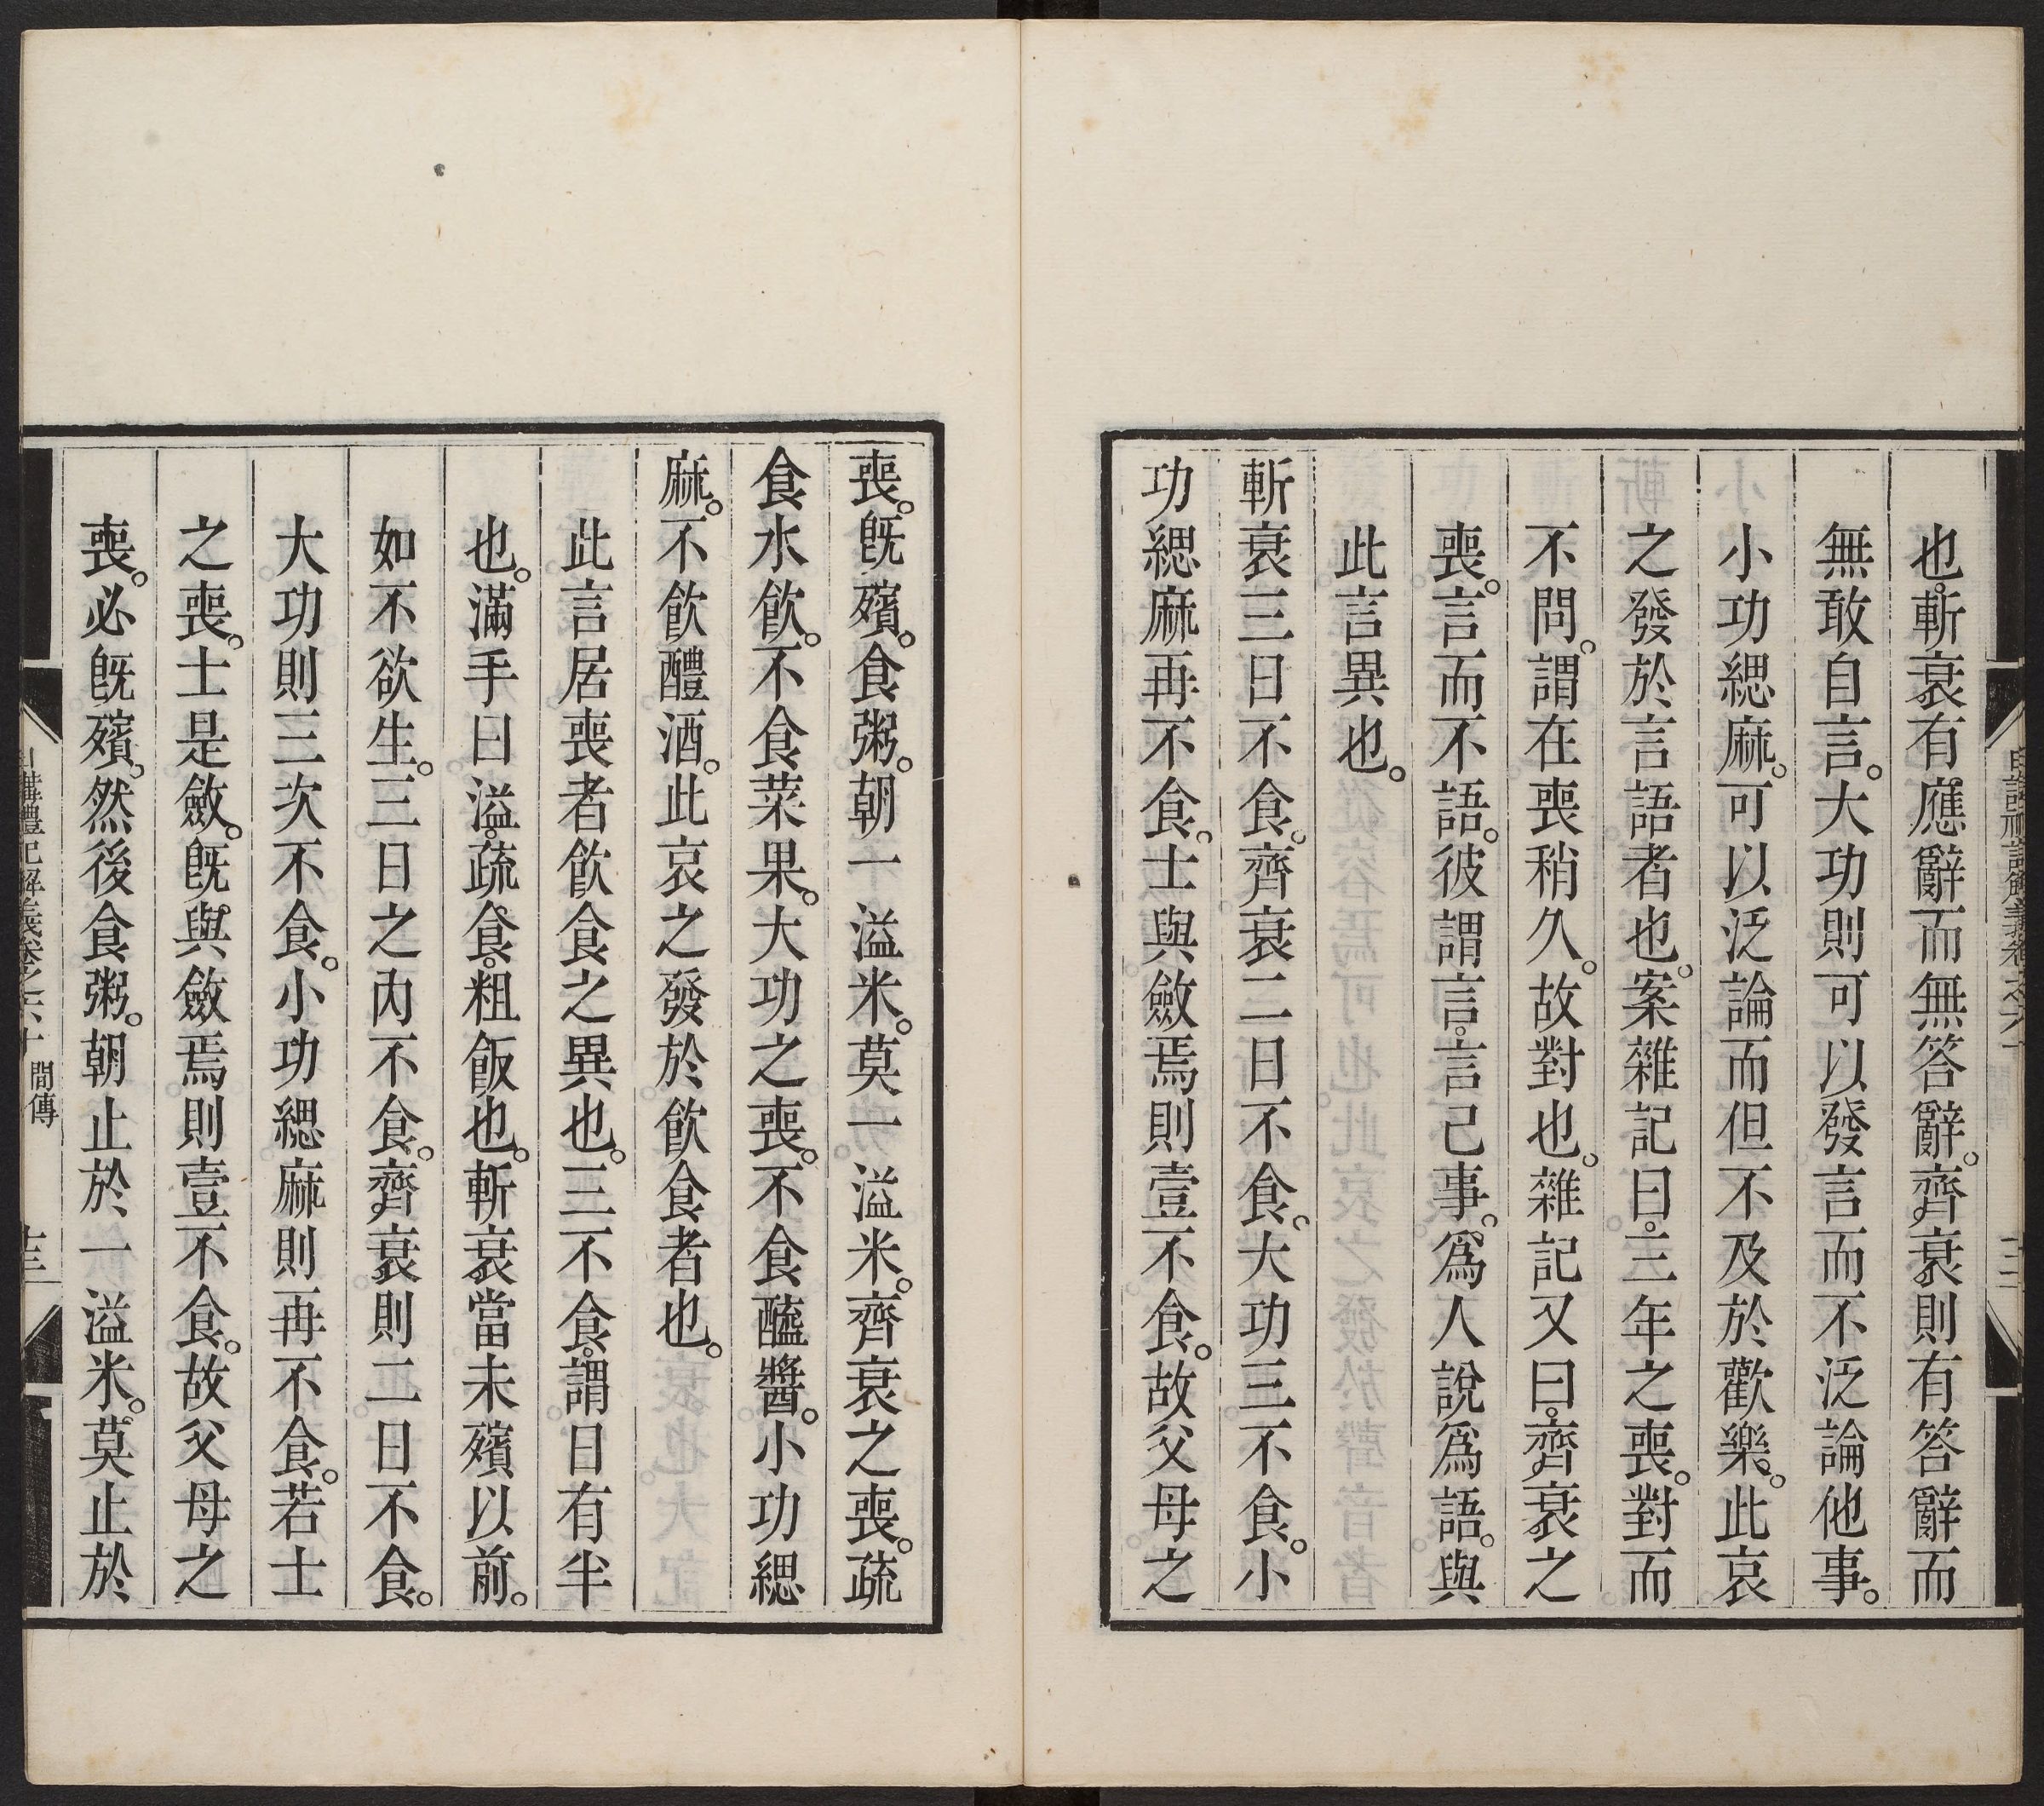 也。斬衰有應辭而無答辭。齊衰則有答辭而
無敢自言。大功則可以發言而不泛論他事。
小功緦麻。可以泛論而但不及於歡樂。此哀
之發於言語者也。案雜記曰。三年之喪。對而
不問。謂在喪稍久。故對也。雜記又曰。齊衰之
喪。言而不語。彼謂言。言己事。爲人說爲語。與
此言異也。
斬衰三日不食。齊衰二日不食。大功三不食。小
功緦麻再不食。士與斂焉則壹不食。故父母之
喪。既殯。食粥。朝一溢米。莫一溢米。齊衰之喪。疏
食水飲。不食菜果。大功之喪。不食醯醬。小功緦
麻。不飲醴酒。此哀之發於飲食者也。
此言居喪者飲食之異也。三不食。謂日有半
也。滿手曰溢。疏食。粗飯也。斬衰當未殯以前。
如不欲生。三日之內不食。齊衰則二日不食。
大功則三次不食。小功緦麻則再不食。若士
之喪。士是斂。既與斂焉則壹不食。故父母之
喪。必既殯。然後食粥。朝止於一溢米。莫止於
日講禮記解義卷之六十 間傳 十三